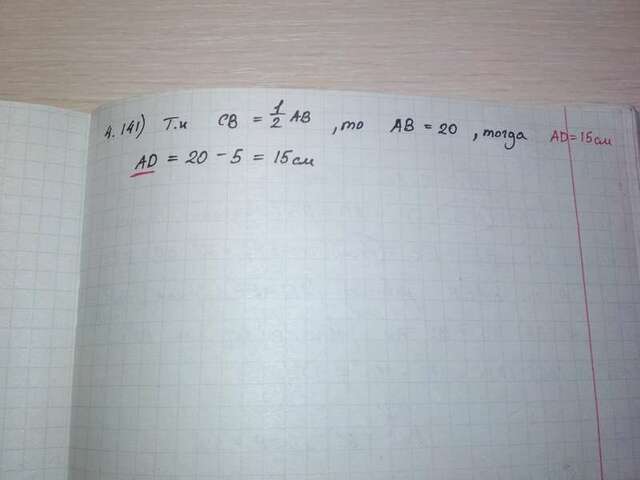 4.141) Т.к CB = 1/2 AB , то AB = 20 , тогда AD = 15 см
AD = 20 - 5 = 15 см